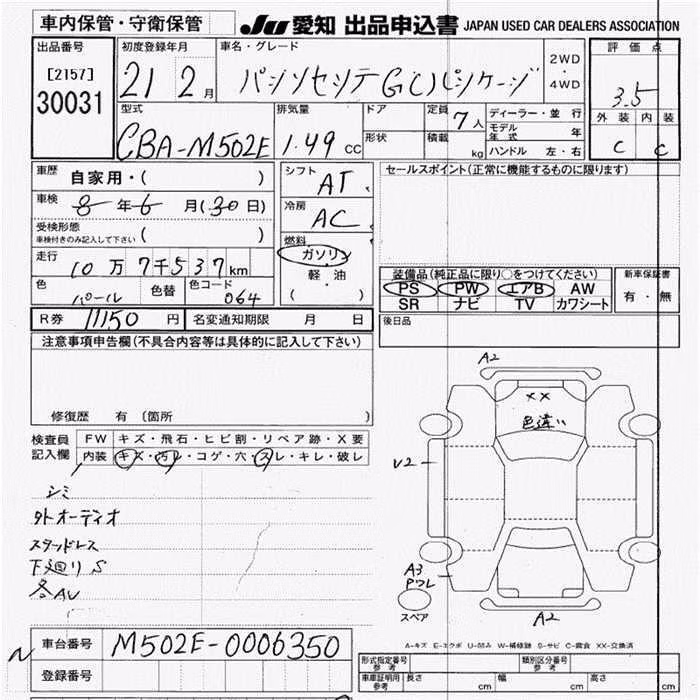 車内保管・守衛保管 JU 愛知 出品申込書 JAPAN USED CAR DEALERS ASSOCIATION
出品番号 初度登録年月 車名・グレード 評価点
[2157] 21 2月 2WD・4WD 3.5
30031 型式 排気量 ドア 定員 7人 ディーラー・並行 外装 内装
CBA-M502E 1.49cc 形状 積載 kg モデル年式 年 C C
ハンドル 左・右
車歴 自家用・( ) シフト AT セールスポイント(正常に機能するものに限ります)
車検 8年6月(30日) 冷房 AC
受検形態 車検付きのみ記入して下さい ( ) 燃料 ガソリン
走行 10万7千537km 軽・油 装備品(純正品に限り○をつけてください) 新車保証書
色 パール 色替 色コード 064 ( ) PS PW エアB AW 有・無
SR ナビ TV カワシート
R券 11150円 名変通知期限 月 日 後日品
注意事項申告欄(不具合内容等は具体的に記入して下さい)
修復歴 有 〔箇所 〕
検査員記入欄 FW キズ・飛石・ヒビ割・リペア跡・X要
内装 キズ・汚レ・コゲ・穴・スレ・キレ・破レ
シミ
外オーディオ
スタッドレス
下廻りS
各AU
A2
XX
色違い
V2
A3
Pワレ
スペア
A2
A-キズ E-エクボ U-凹み W-補修跡 S-サビ C-腐食 XX-交換済
N 車台番号 M502E-0006350
登録番号
形式指定番号 参考 類別区分番号 参考
車庫証明用 参考 長さ cm 幅 cm 高さ cm